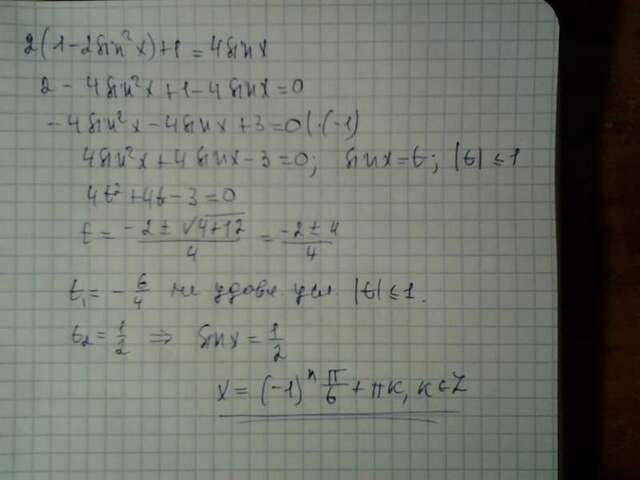 2(1-2sin²x)+1=4sinx
2-4sin²x+1-4sinx=0
-4sin²x-4sinx+3=0 |·(-1)
4sin²x+4sinx-3=0; sinx=t; |t|≤1
4t²+4t-3=0
t = (-2±√(4+12))/4 = (-2±4)/4
t₁ = -6/4 не удовл. усл. |t|≤1.
t₂ = 1/2 ⇒ sinx = 1/2
x = (-1)ᵏ π/6 + πк, к∈Z